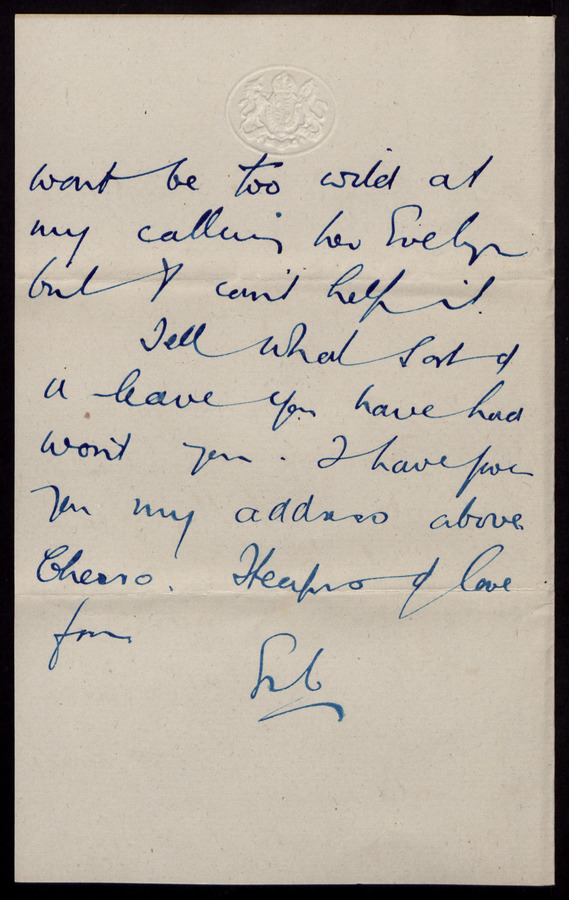 wont be too wild at
my calling her Evelyn
but I can't help it.
Tell what sort of
a leave you have had
won't you. I have given
you my address above.
Cheero. Heaps of love
from